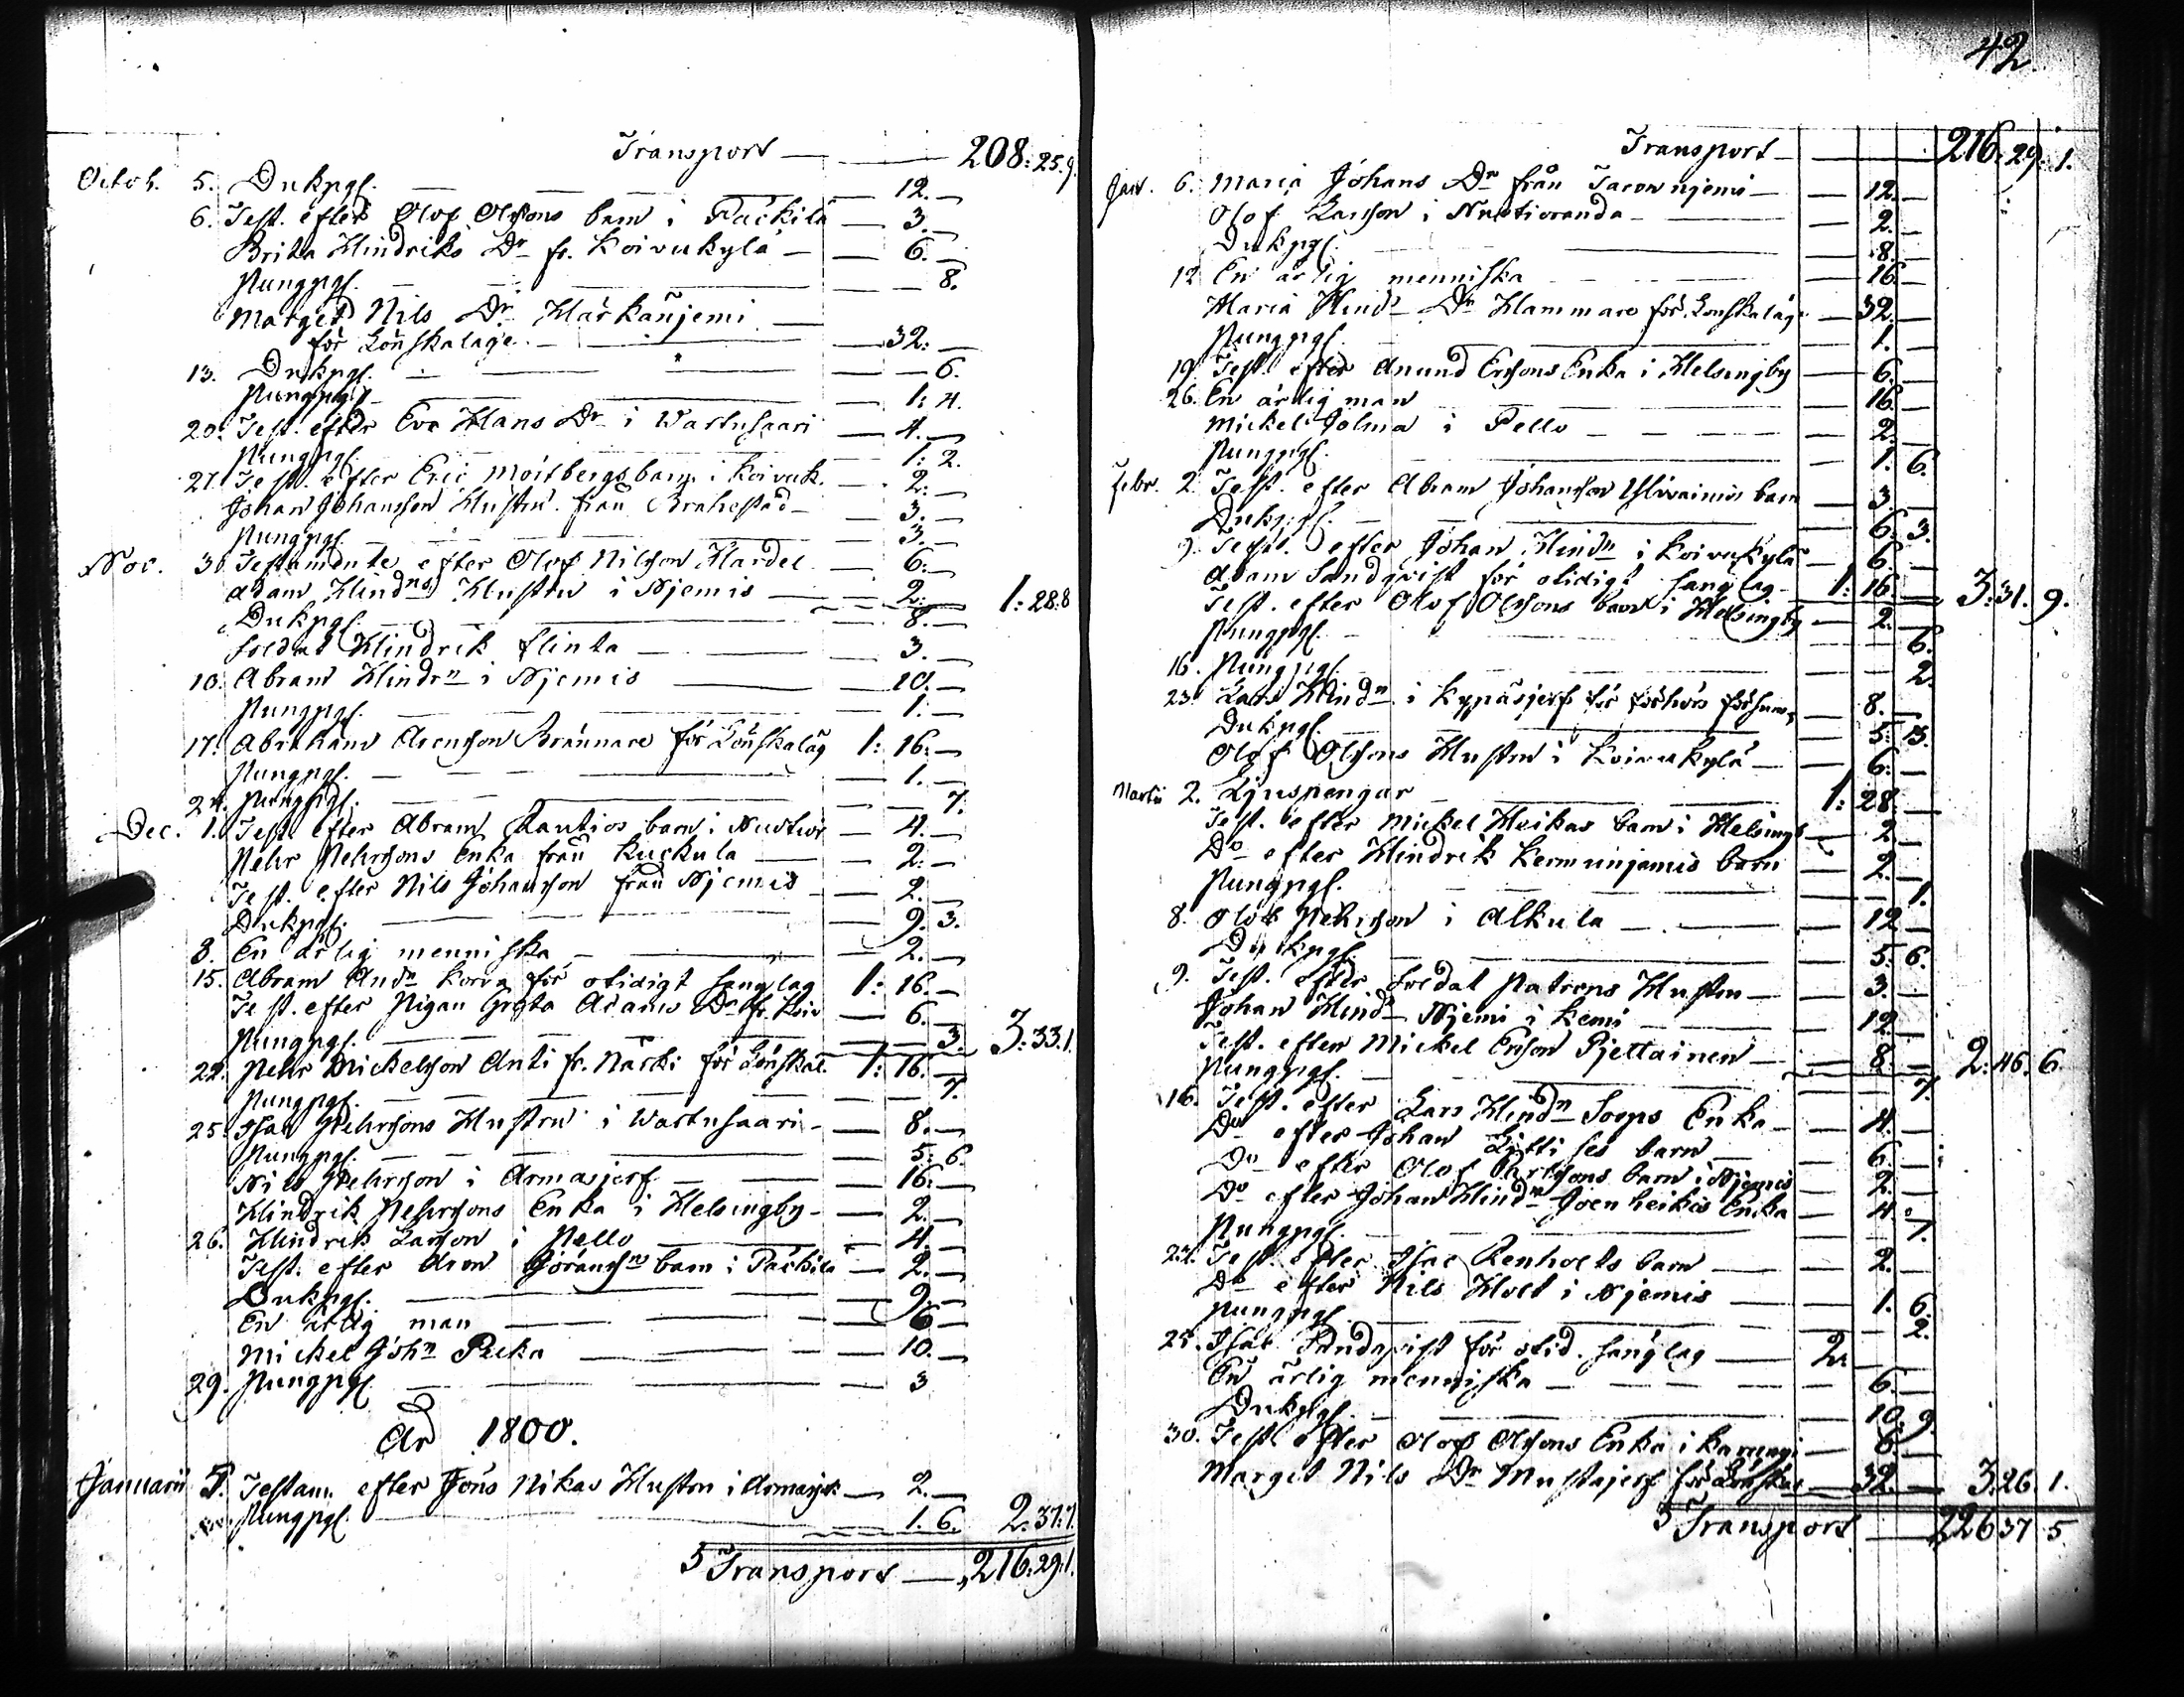 Transport — 208: 25. 9.
Octob. 5. Dukpgl. — 12. —
6. Test. efter Olof Olssons barn i Päckilä — 3. —
Brita Hindriks Dr fr. Koivukylä — 6. —
Pungpgl. — 8.
Marget Nils Dr Härkänjemi
för Lönskaläge — 32: —
13. Dukpgl. — 6.
Pungpgl. — 1: 4.
20. Test. efter Eva Hans Dr i Wartusaari — 4. —
Pungpgl. — 1: 2.
27. Test. efter Eric Moitbergs barn i Koivuk. — 2: —
Johan Johansson Hustru från Brahestad — 3. —
Pungpgl. — 3. —
Nov. 3. Testamente efter Olof Nilsson Hardel — 6: —
Adam Hindns Hustru i Njemis — 2: — 1: 28: 8
Dukpgl. — 8. —
Soldat Hindrik Flinta — 3. —
10. Abram Hindrn i Njemis — 10. —
Pungpgl. — 1. —
17. Abraham Arensson Brännare för Lönskaläg 1: 16: —
Pungpgl. — 1. —
24. Pungpgl. — 7.
Dec. 1. Test. efter Abram Rautios barn i Nuotior — 4. —
Pehr Pehrssons Enka från Kuckula — 2: —
Test. efter Nils Johansson från Njemis — 2. —
Dukpgl. — 9. 3.
8. En ärlig menniska — 2. —
15. Abram Andn Korva för otidigt sänglag 1: 16. —
Test. efter Pigan Greta Adams Dr fr. Koiv — 6. —
Pungpgl. — 3. 3: 33. 1.
22. Pehr Mickelsson Anti fr. Närki för Lönskal. 1: 16. —
Pungpgl. — 7.
25. Isac Pehrssons Hustru i Wartusaari — 8. —
Pungpgl. — 5: 6.
Nils Pehrsson i Armasjerf — 16. —
Hindrik Pehrssons Enka i Helsingby — 2. —
26. Hindrik Larsson i Pello — 4. —
Test. efter Aron Göranssns barn i Päckilä — 2. —
Dukpgl. — 9. —
En ärlig man — 6 —
Mickel John Pecka — 10. —
29. Pungpgl. — 3
År 1800.
Januarii 5. Testam. efter Jöns Nikas Hustru i Armasjerf — 2. —
Pungpgl. — 1. 6. 2: 37: 1.
Transport — 216: 29: 1.
42.
Transport — 216: 29: 1.
Janv. 6. Maria Johans Dr från Jarownjemi — 12. —
Olof Larsson i Nuotioranda — 2. —
Dukpgl. — 8. —
12 En ärlig menniska — 16. —
Maria Hinds Dr Hammare för Lönskaläge — 32. —
Pungpgl. — 1. —
19. Test. efter Anund Ersons Enka i Helsingby — 6. —
26. En ärlig man — 16. —
Mickel Jolma i Pello — 2. —
Pungpgl. — 1. 6.
Febr. 2. Test. efter Abram Johansson Ylivainios barn — 3. —
Dukpgl. — 6. 3.
9. Test. efter Johan Hindn i Koivukylä — 6. —
Adam Sandqvist för otidigt sänglag — 1: 16. — 3: 31. 9.
Test. efter Olof Olssons barn i Helsingby — 2. —
Pungpgl. — 6.
16. Pungpgl. — 2.
23. Lars Hindn i Kypäsjerf för förhörs försum: — 8. —
Dukpgl. — 5: 3.
Olof Olssons Hustru i Koivukylä — 6. —
Martii 2. Ljuspengar 1: 28. —
Test. efter Mickel Heikas barn i Helsingb — 2. —
Do efter Hindrik Kermunjemis barn 2. —
Pungpgl. — 1.
8. Olof Pehrsson i Alkula — 12 —
Dukpgl. — 5. 6.
9. Test. efter Soldat Patrons Hustru — 3. —
Johan Hindn Njemi i Kemi — 12 —
Test. efter Mickel Erson Pjettainen — 8. — 2: 46. 6.
Pungpgl. — 7.
16. Test. efter Lars Hindn Sorps Enka — 4. —
Do efter Johan Littises barn — 6. —
Do efter Olof barn i Njemis — 2. —
Do efter Johan Hindn Joenheikis Enka — 4. —
Pungpgl. — 7.
23. Test. efter Isac Renholts barn — 2. —
Do efter Nils Holt i Njemis — 1. 6.
Pungpgl. — 2.
25. Isac Sandqvist för otid. sänglag — 2. —
En ärlig menniska — 6. —
Dukpgl. — 10. 9.
30. Test. efter Olof Olssons Enka i Karungi — 6. —
Marget Nils Dr Mustajerf för Lönskal — 32. — 3: 26. 1.
Transport — 226 37 5.